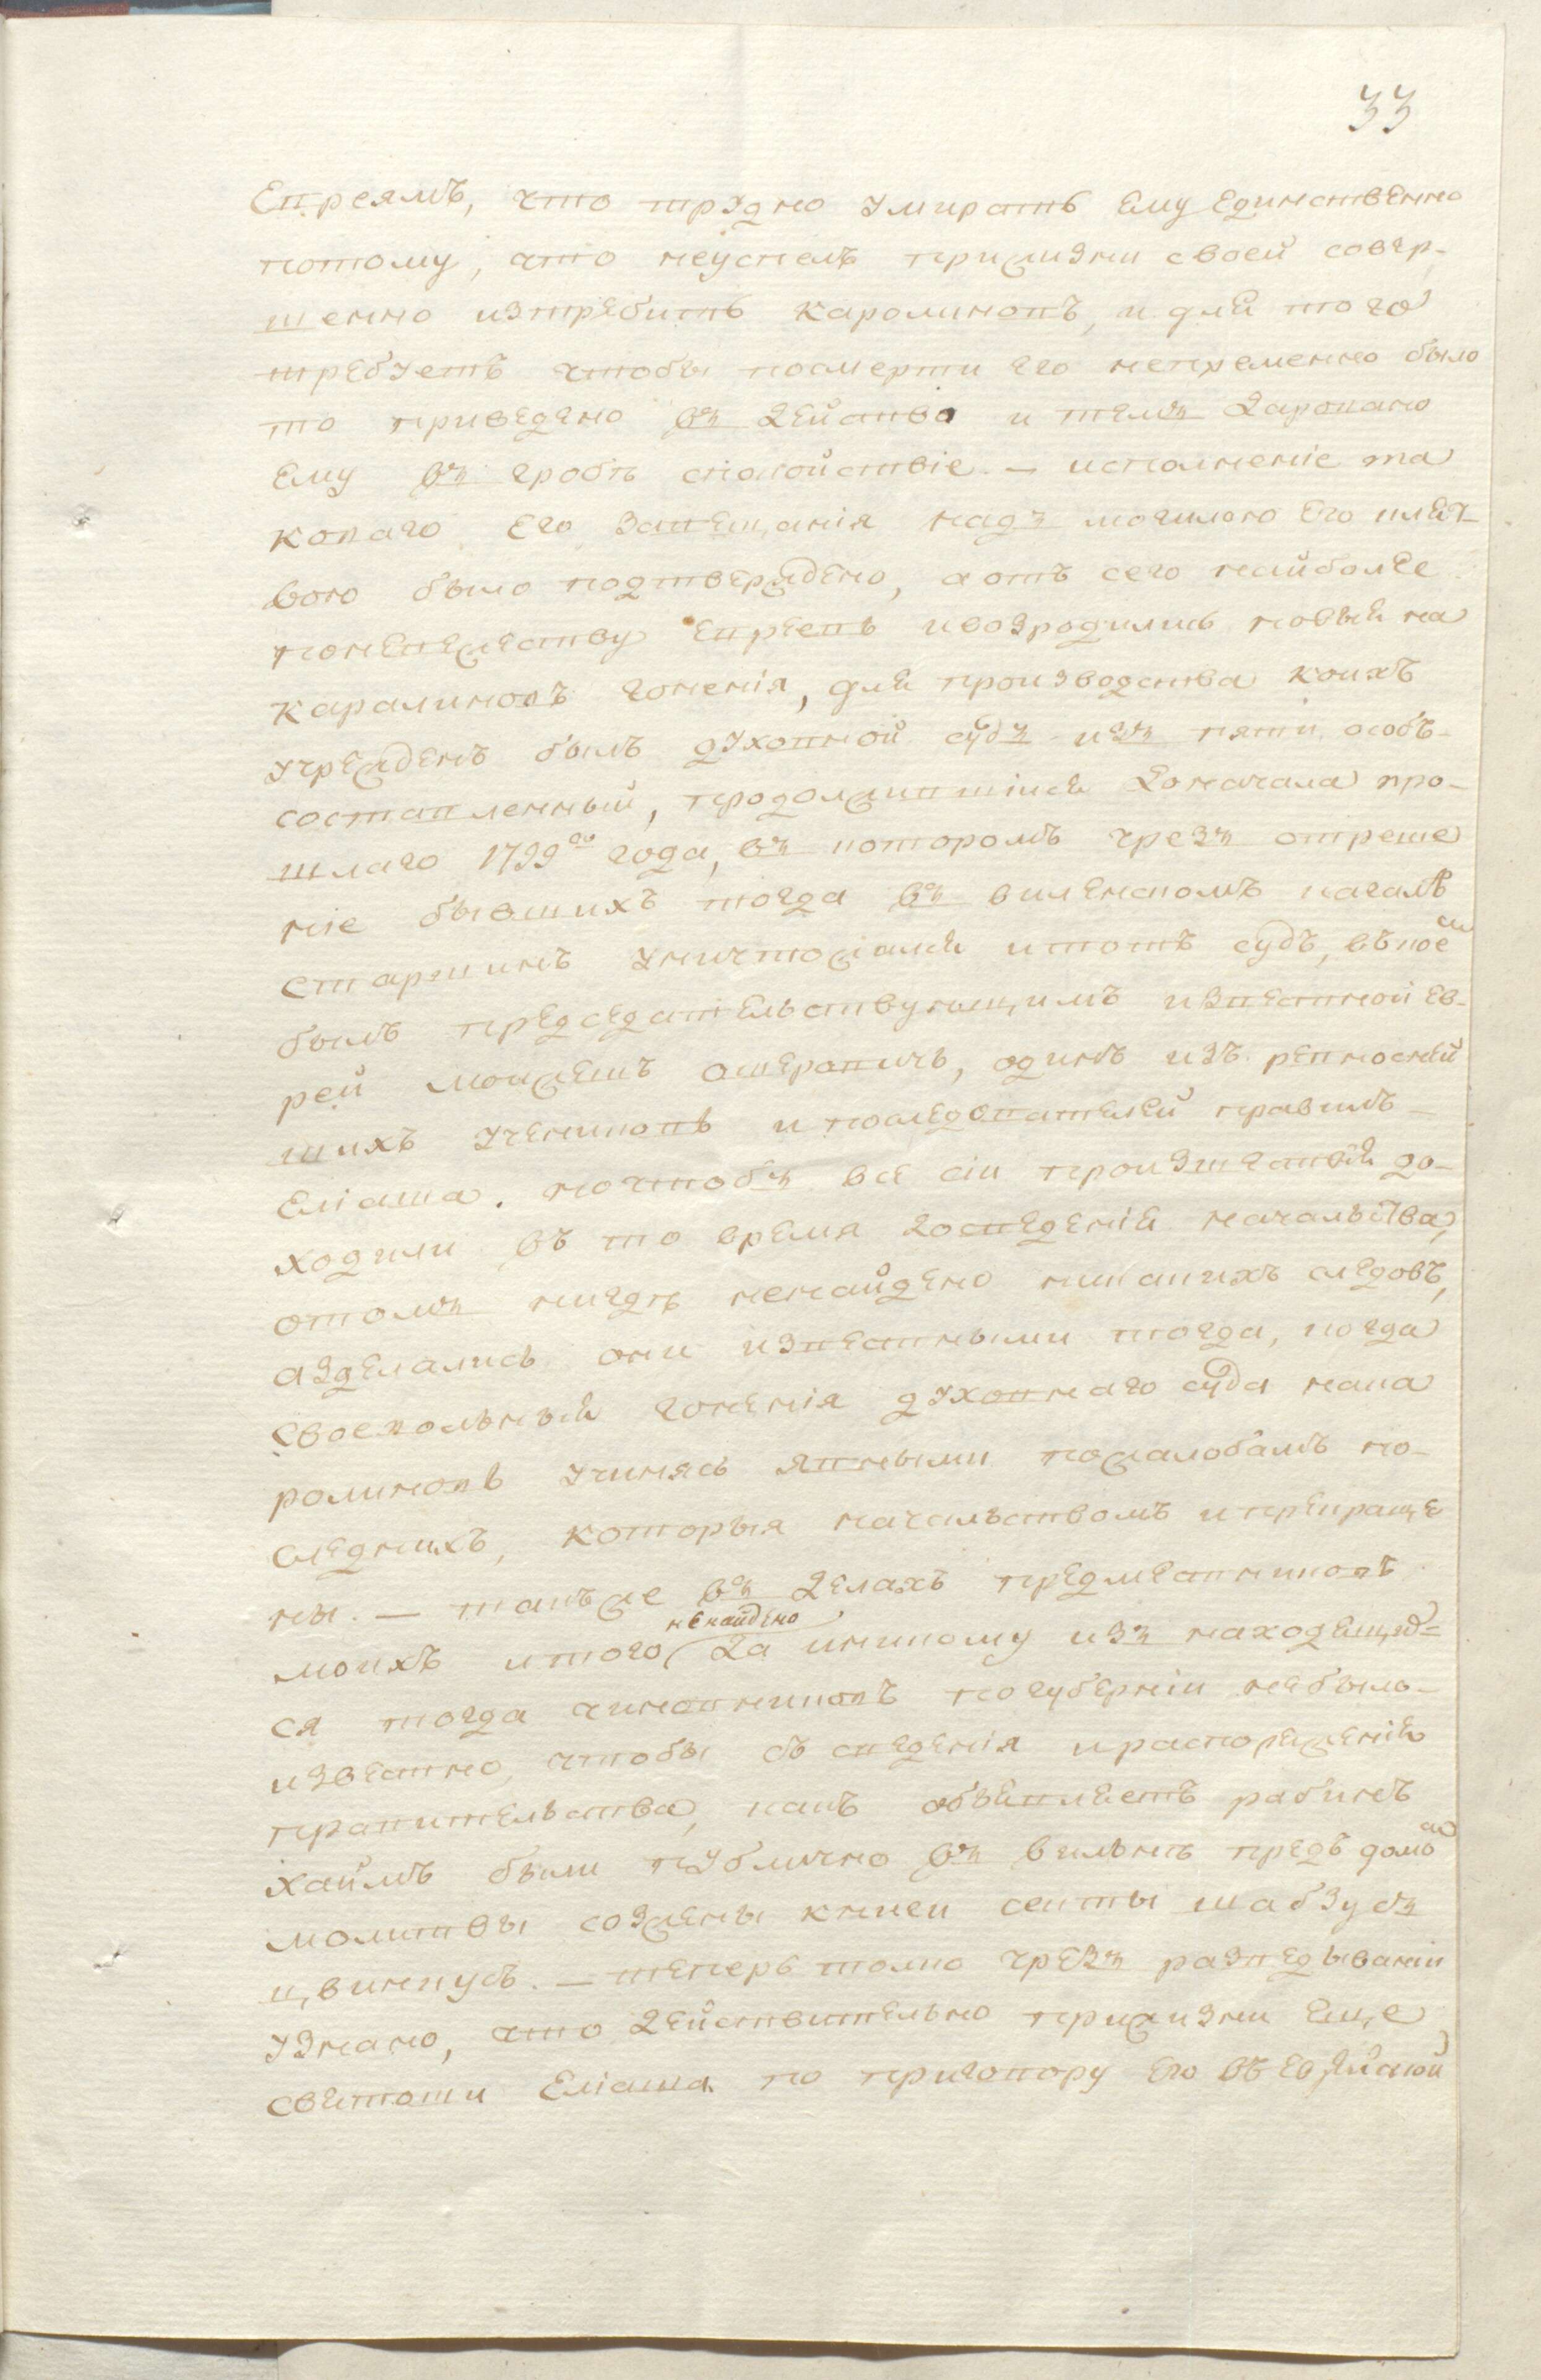 33
Евреямъ, что трудно умирать ему единственно
потому, что неуспелъ прижизни своей совер-
шенно изтребить каролиновъ, и для того
требуетъ чтобы посмерти его непременно было
то приведено въ действо и темъ даровано
ему въ гробѣ спокойствіе. — исполненіе та
коваго его завещанія надъ могилою его клят-
вою было подтверждено, а отъ сего наиболее
поневежеству Евреевъ ивозродились новыя на
каралиновъ гоненія, для производства коихъ
учрежденъ былъ духовной судъ изъ пяти особъ
составленный, продолжившійся доначала про-
шлаго 1799го года, въ которомъ чрезъ отреше
ніе бывшихъ тогда въ виленскомъ кагалѣ
старшинъ уничтожался и тотъ судъ, въ коемъ
былъ председательствующимъ известной ев-
рей Мовжешъ Ошеровичъ, одинъ изъ ревносней
шихъ учениковъ и последователей правилъ
Еліаша. но чтобъ все сіи произшествія до-
ходили въ то время досведенія начальства,
отомъ нигдѣ ненайдено никакихъ следовъ,
азделались они известными тогда, когда
своевольныя гоненія духовнаго суда нака
ролиновъ учинясь явными пожалобамъ по-
следнихъ, которыя начальствомъ и прекраще
ны. — такъ же въ делахъ предместниковъ
моихъ итого ненайдено да иникому изъ находящих-
ся тогда чиновниковъ погуберніи небыло
известно, чтобы съ сведенія и распоряженія
правительства, какъ объявляетъ рабинъ
хаймъ были публично въ вильнѣ предъ домомъ
молитвы созжены книги секты шабзуъ
цвинкусъ. — теперь толко чрезъ разведываніи
узнано, что действительно прижизни еще
святоши Еліаша по приговору его въ еврейской